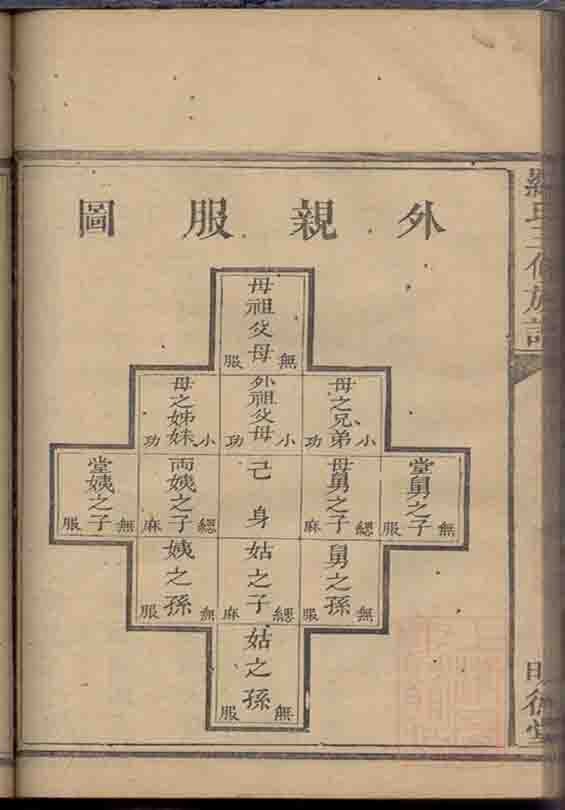 外親服圖
母祖父母 無服
母之兄弟 小功
外祖父母 小功
母之姊妹 小功
堂舅之子 無服
母舅之子 緦麻
己身
両姨之子 緦麻
堂姨之子 無服
舅之孫 無服
姑之子 緦麻
姨之孫 無服
姑之孫 無服
氏三修族譜
明德堂